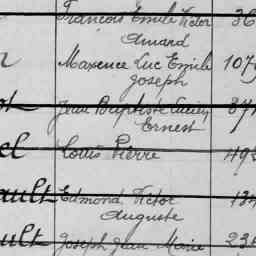 François Emile Victor 36
Amand
Maxence Luc Emile 107
Joseph
Jean Baptiste Lucien 87
Ernest
el Louis Pierre 492
ault Edmond Victor 134
Auguste
ult Joseph Jean Marie 236